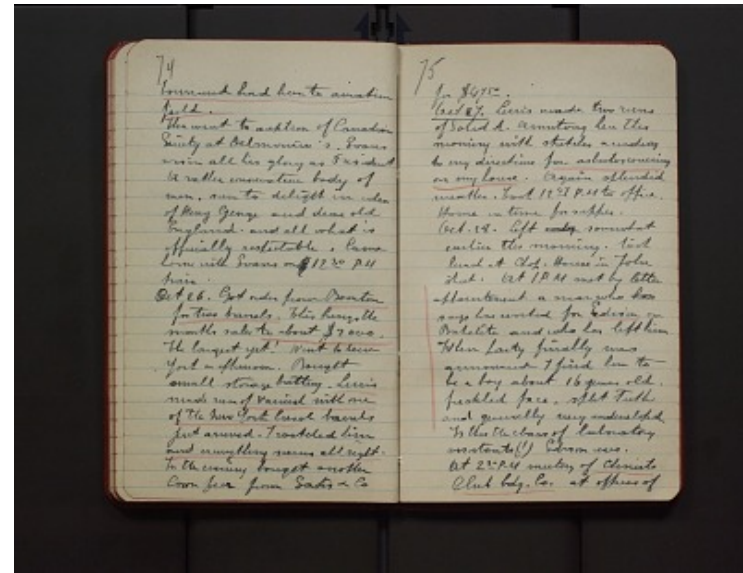 74
hard here to aviation
field.
Then went to     of Canadian
Society at Delmonico's. Evans
was in all his glory as President
A rather conservative body of
men, seem to delight in idea
of King George and dear old
England. and all what is
officially respectable. Came
home with Evans on 12 30 P.M
train.
Oct 26. Got order from Boonton
for two barrels. This brings the
months sales to about $7000.
The largest yet! Went to New
York in afternoon. Bought
small storage battery. Lewis
made run of varnish with one
of the New York Cresol barrels
just arrived. I watched him
and everything seems all right.
In the evening bought another
Corn     from Saks & Co
75
for $47 50.
Oct 27. Lewis made two runs
of Solid A. Armstrong here this
morning with sketches according
to my directions for asbestos covering
on my house. Again splendid
weather. Took 12 27 P.M to office.
Home in time for supper.
Oct. 28. Left somewhat
earlier this morning. Took
lunch at Chop House in John
street. At 1 P.M met by letter
appointment a man who
says has worked for Edison on
Bakelite and who has left him
When party finally was
announced I find him to
be a boy about 16 years old.
freckled face, split teeth
and generally very undeveloped.
Is this the class of laboratory
assistants(!) Edison uses.
At 2 P.M meeting of Chemists
Club bdg. Co. at offices of